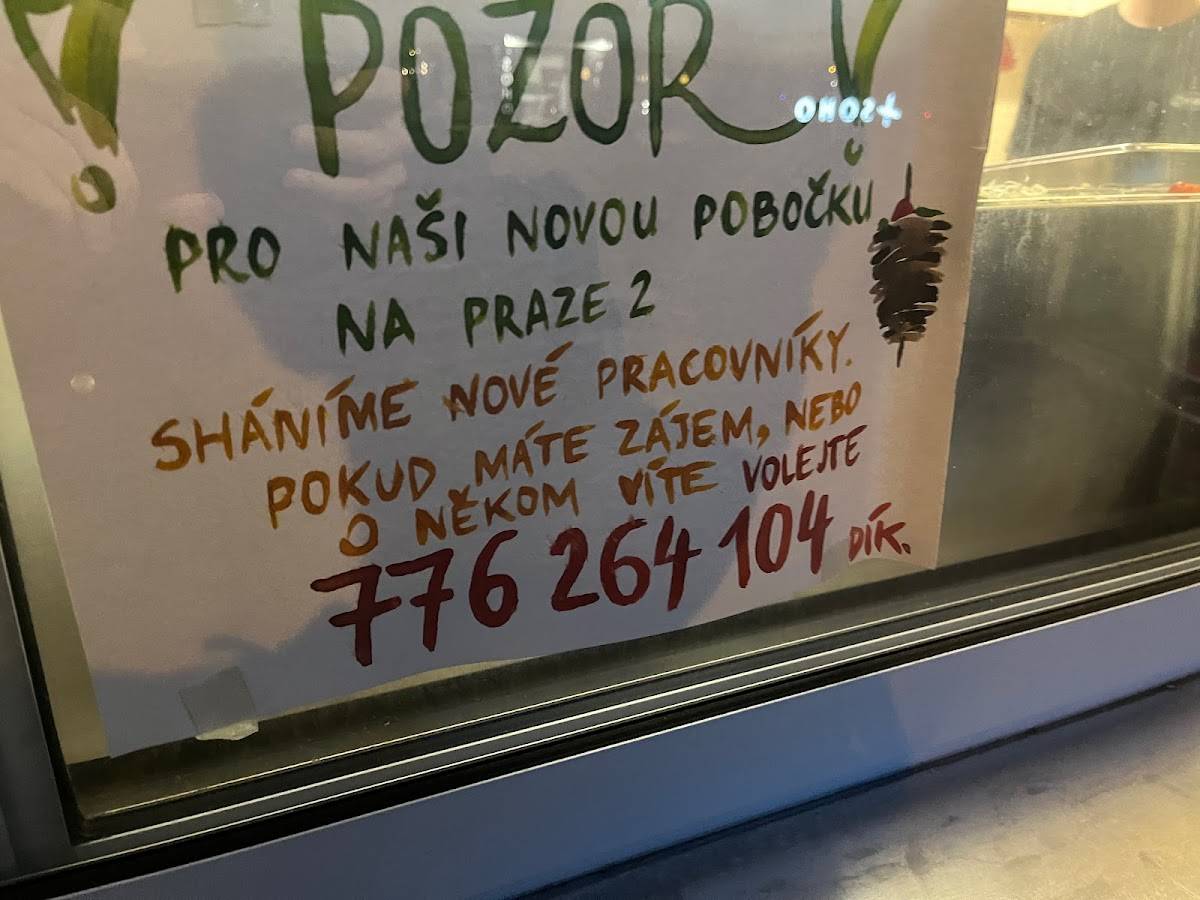 ! POZOR !
PRO NAŠI NOVOU POBOČKU
NA PRAZE 2
SHÁNÍME NOVÉ PRACOVNÍKY.
POKUD MÁTE ZÁJEM, NEBO
O NĚKOM VÍTE VOLEJTE
776 264 104 DÍK.